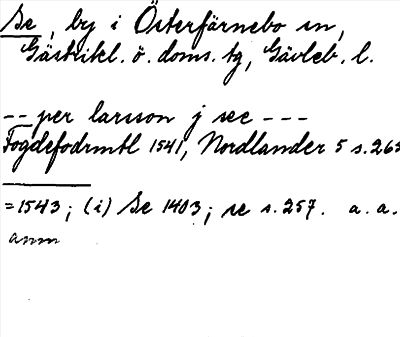 Se, by i Österfärnebo sn,
Gästrikl. ö. doms. tg, Gävleb. l.
-- per larsson j see ---
Fogdefodrmtl 1541, Nordlander 5 s. 265
= 1543; (i) Se 1403; se s. 257. a. a.
anm